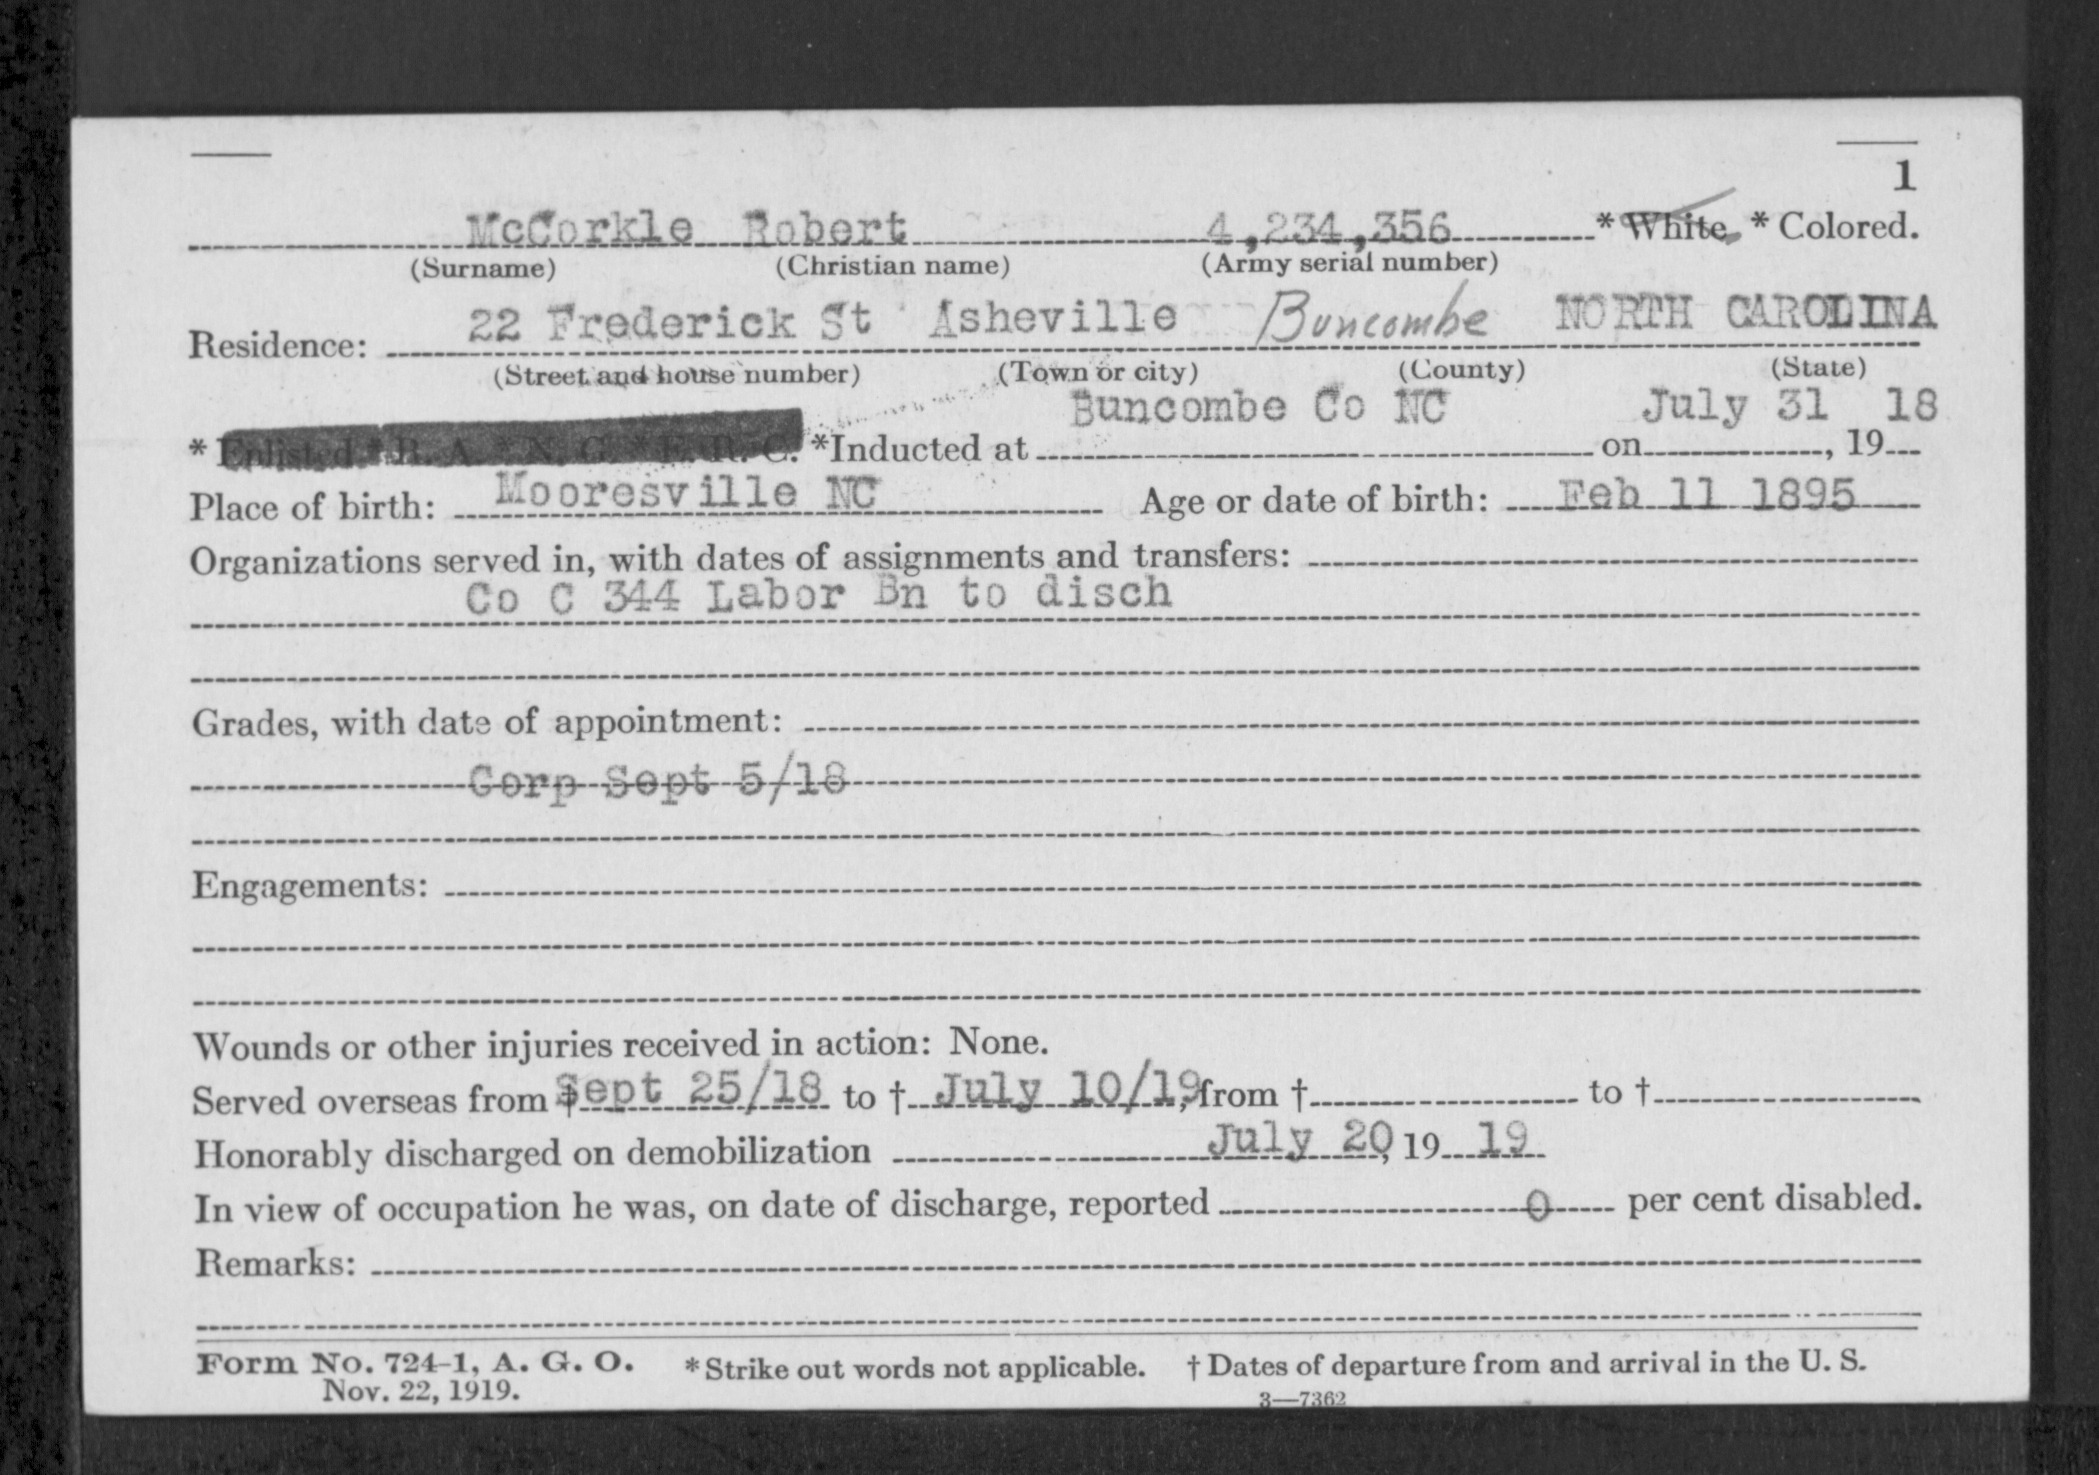 1
McCorkle Robert 4,234,356 * White. * Colored.
(Surname) (Christian name) (Army serial number)
Residence: 22 Frederick St Asheville Buncombe NORTH CAROLINA
(Street and house number) (Town or city) (County) (State)
* Enlisted * R. A. * N. G. * E. R. C. *Inducted at Buncombe Co NC on July 31, 19 18
Place of birth: Mooresville NC Age or date of birth: Feb 11 1895
Organizations served in, with dates of assignments and transfers:
Co C 344 Labor Bn to disch
Grades, with date of appointment:
Corp Sept 5/18
Engagements:
Wounds or other injuries received in action: None.
Served overseas from † Sept 25/18 to † July 10/19, from † to †
Honorably discharged on demobilization July 20, 19 19
In view of occupation he was, on date of discharge, reported 0 per cent disabled.
Remarks:
Form No. 724-1, A. G. O. * Strike out words not applicable. † Dates of departure from and arrival in the U. S.
Nov. 22, 1919. 3—7362